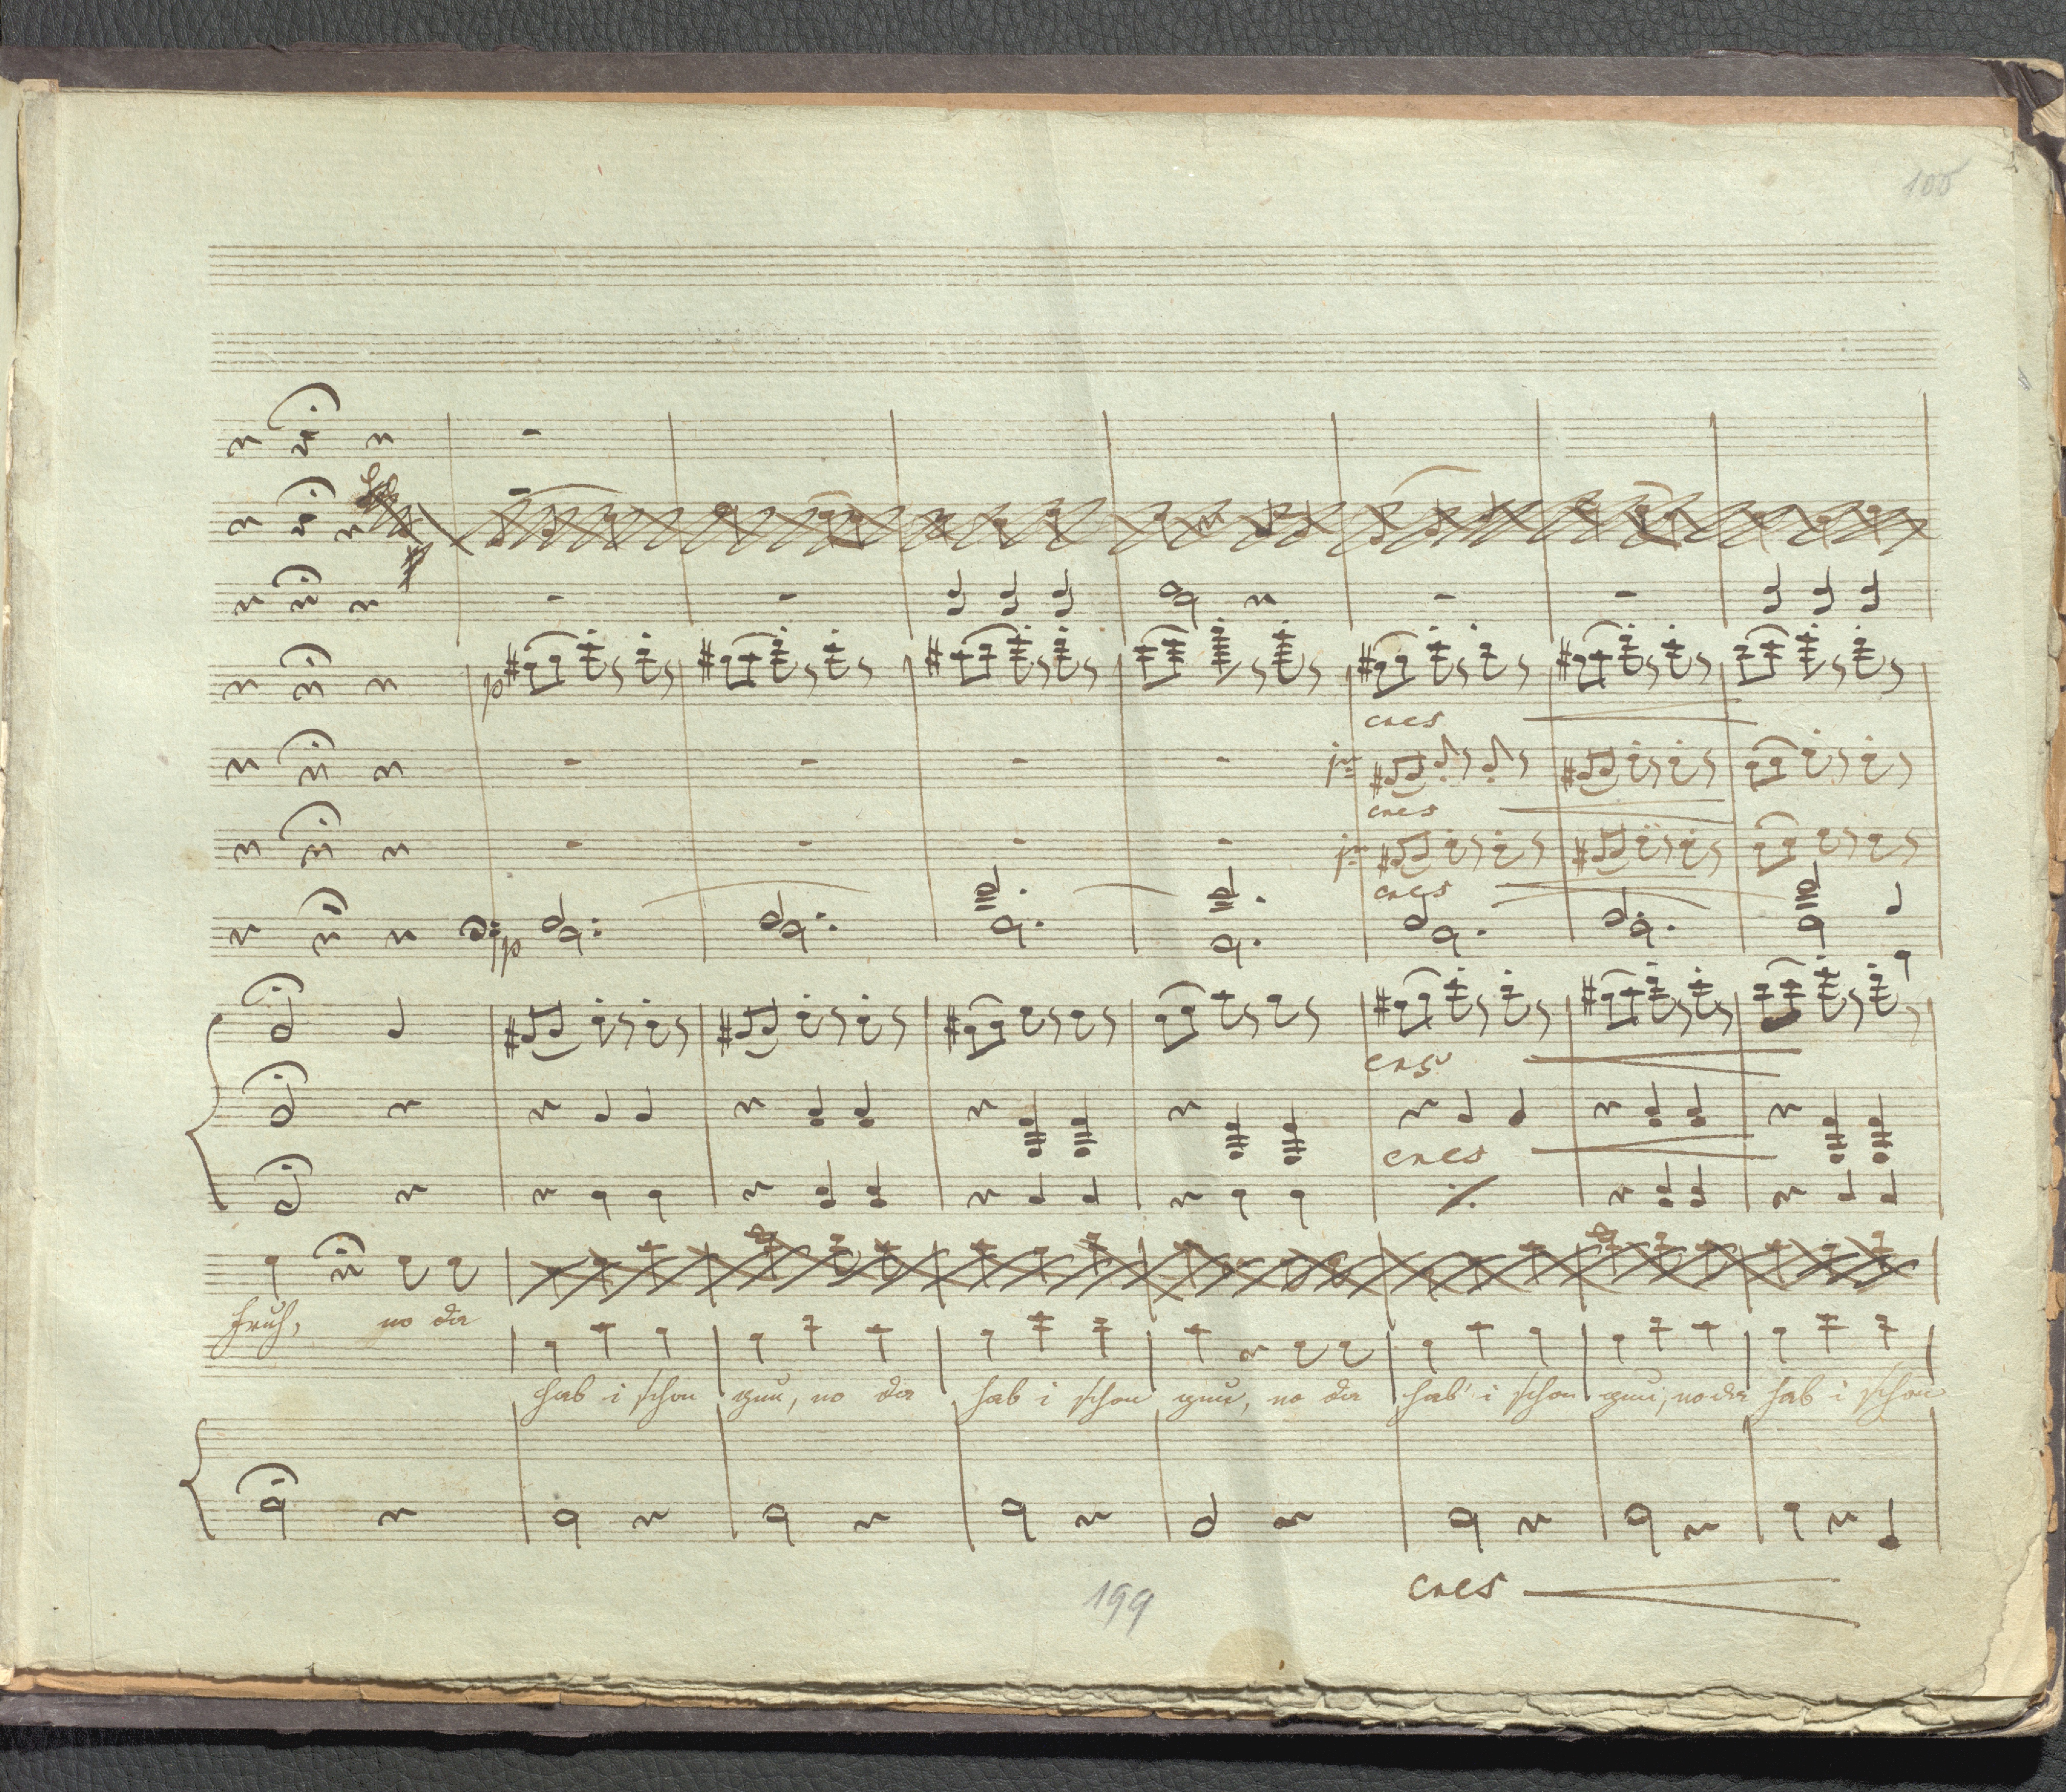 105
p
cres
cres
cres
p
cres
cres
früh, no da
hab i schon gnu, no da hab i schon gnu, no da hab' i schon gnu, no da hab i schon
cres
199